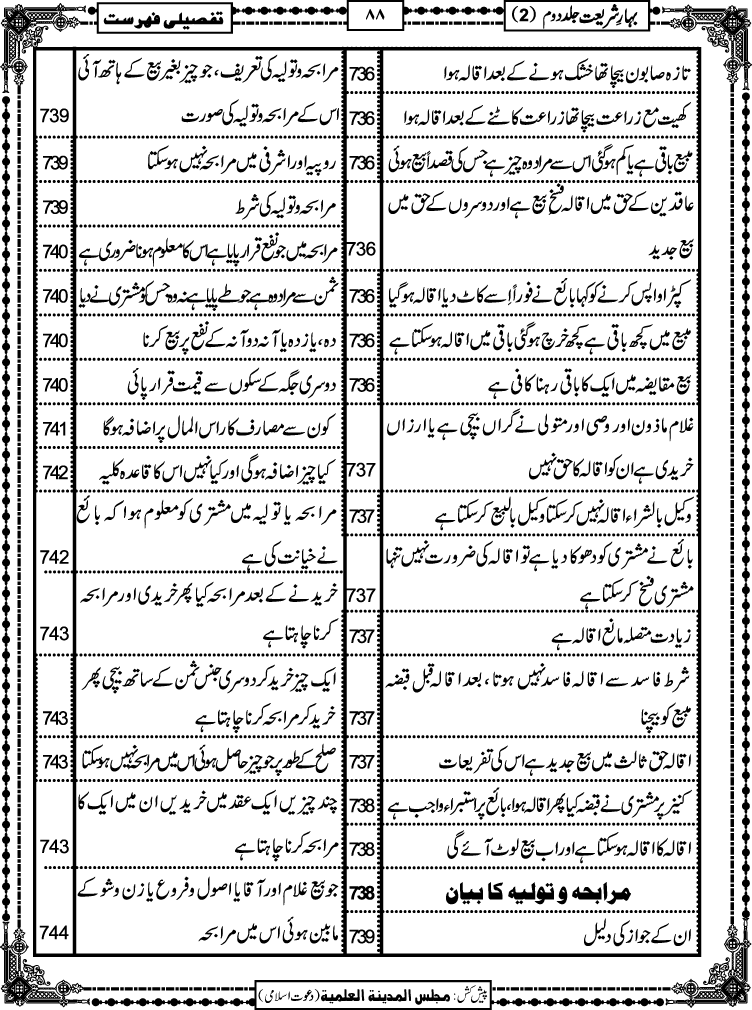 بہارِ شریعت جلد دوم (2)
۸۸
تفصیلی فہرست
تازہ صابون بیچا تھا خشک ہونے کے بعد اقالہ ہوا 736
کھیت مع زراعت بیچا تھا زراعت کاٹنے کے بعد اقالہ ہوا 736
مبیع باقی ہے یا کم ہوگئی اس سے مراد وہ چیز ہے جس کی قصداً بیع ہوئی 736
عاقدین کے حق میں اقالہ فسخ بیع ہے اور دوسروں کے حق میں
بیع جدید 736
کپڑا واپس کرنے کو کہا بائع نے فوراً اِسے کاٹ دیا اقالہ ہوگیا 736
مبیع میں کچھ باقی ہے کچھ خرچ ہوگئی باقی میں اقالہ ہوسکتا ہے 736
بیع مقایضہ میں ایک کا باقی رہنا کافی ہے 736
غلام ماذون اور وصی اور متولی نے گراں بیچی ہے یا ارزاں
خریدی ہے ان کو اقالہ کا حق نہیں 737
وکیل بالشراء اقالہ نہیں کرسکتا وکیل بالبیع کرسکتا ہے 737
بائع نے مشتری کو دھوکا دیا ہے تو اقالہ کی ضرورت نہیں تنہا
مشتری فسخ کرسکتا ہے 737
زیادت متصلہ مانع اقالہ ہے 737
شرط فاسد سے اقالہ فاسد نہیں ہوتا، بعد اقالہ قبل قبضہ
مبیع کو بیچنا 737
اقالہ حق ثالث میں بیع جدید ہے اس کی تفریعات 737
کنیز پر مشتری نے قبضہ کیا پھر اقالہ ہوا، بائع پر استبراء واجب ہے 738
اقالہ کا اقالہ ہوسکتا ہے اور اب بیع لوٹ آئے گی 738
مرابحہ و تولیہ کا بیان 738
ان کے جواز کی دلیل 739
مرابحہ و تولیہ کی تعریف، جو چیز بغیر بیع کے ہاتھ آئی
اس کے مرابحہ و تولیہ کی صورت 739
روپیہ اور اشرفی میں مرابحہ نہیں ہوسکتا 739
مرابحہ و تولیہ کی شرط 739
مرابحہ میں جو نفع قرار پایا ہے اس کا معلوم ہونا ضروری ہے 740
ثمن سے مراد وہ ہے جو طے پایا ہے نہ وہ جس کو مشتری نے دیا 740
دہ، یازدہ یا آنہ دو آنہ کے نفع پر بیع کرنا 740
دوسری جگہ کے سکوں سے قیمت قرار پائی 740
کون سے مصارف کا راس المال پر اضافہ ہوگا 741
کیا چیز اضافہ ہوگی اور کیا نہیں اس کا قاعدہ کلیہ 742
مرابحہ یا تولیہ میں مشتری کو معلوم ہوا کہ بائع
نے خیانت کی ہے 742
خریدنے کے بعد مرابحہ کیا پھر خریدی اور مرابحہ
کرنا چاہتا ہے 743
ایک چیز خرید کر دوسری جنس ثمن کے ساتھ بیچی پھر
خرید کر مرابحہ کرنا چاہتا ہے 743
صلح کے طور پر جو چیز حاصل ہوئی اس میں مرابحہ نہیں ہوسکتا 743
چند چیزیں ایک عقد میں خریدیں ان میں ایک کا
مرابحہ کرنا چاہتا ہے 743
جو بیع غلام اور آقا یا اصول و فروع یا زن و شو کے
مابین ہوئی اس میں مرابحہ 744
پیش کش: مجلس المدینۃ العلمیۃ (دعوت اسلامی)